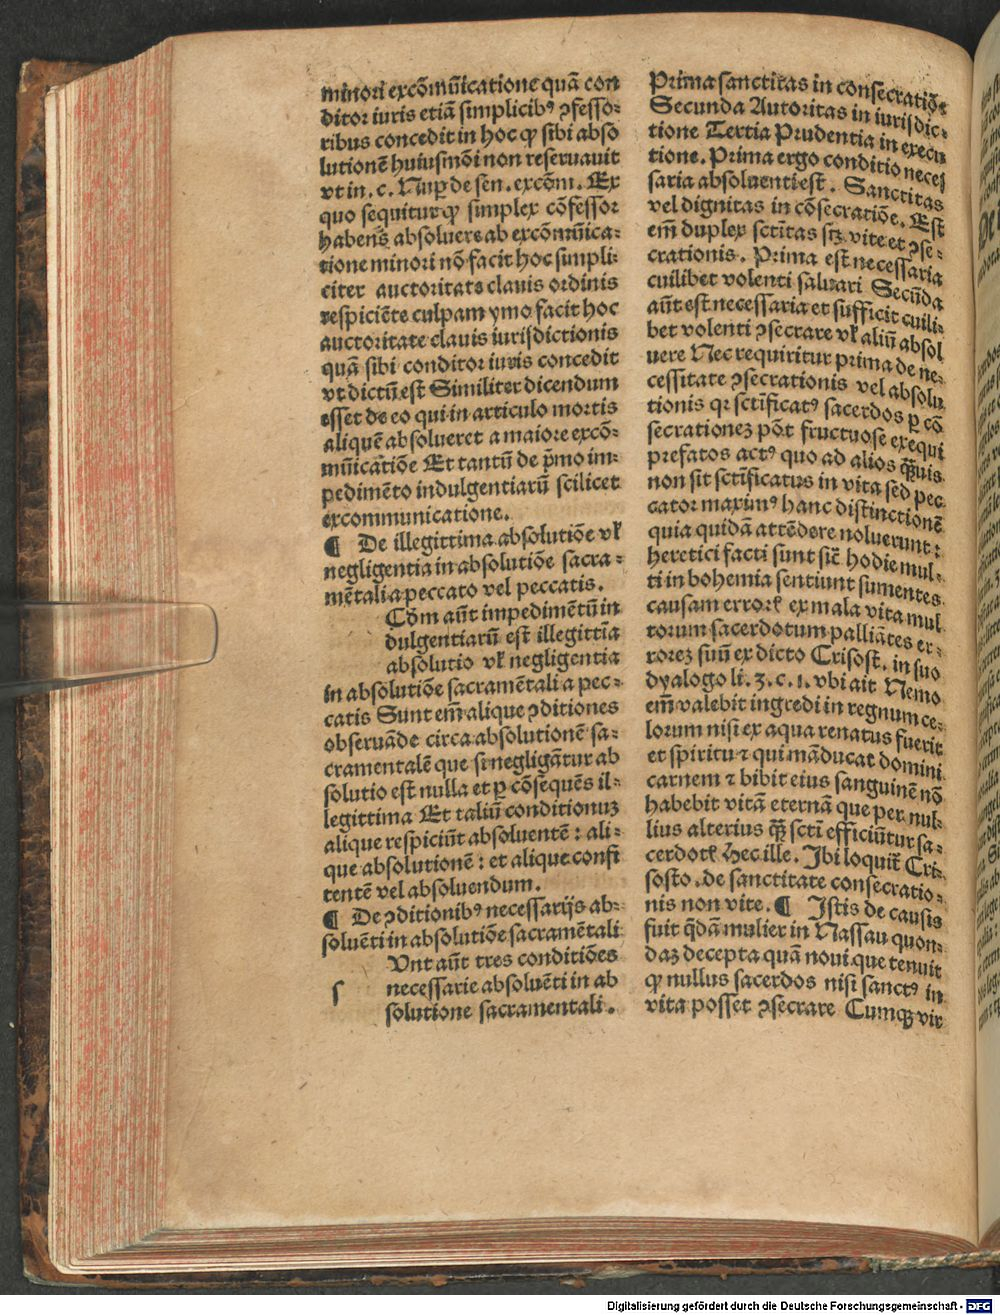 minori excōmūicatione quā con
ditor iuris etiā simplicibꝰ ꝯfesso⸗
ribus concedit in hoc ꝙ sibi abso
lutionē huiusmōi non reseruauit
vt in .c. Nuꝑ de sen. excōm. Ex
quo sequitur ꝙ simplex cōfessor
habens absoluere ab excōmūica⸗
tione minori nō facit hoc simpli⸗
citer auctoritate clauis ordinis
respiciēte culpam ymo facit hoc
auctoritate clauis iurisdictionis
quā sibi conditor iuris concedit
vt dictū est Similiter dicendum
esset de eo qui in articulo mortis
aliquē absolueret a maiore excō⸗
mūicatiōe Et tantū de p̄mo im⸗
pedimēto indulgentiarū scilicet
excommunicatione.
¶ De illegittima absolutiōe vł
negligentia in absolutiōe sacra⸗
mētali a peccato vel peccatis.
Cōm aūt impedimētū in
dulgentiarū est illegittīa
absolutio vł negligentia
in absolutiōe sacramētali a pec⸗
catis Sunt em̄ alique ꝯditiones
obseruāde circa absolutionē sa⸗
cramentalē que si negligātur ab
solutio est nulla et ꝑ cōsequēs il⸗
legittima Et taliū conditionuꝫ
alique respiciūt absoluentē : ali⸗
que absolutionē : et alique confi
tentē vel absoluendum.
¶ De ꝯditionibꝰ necessarijs ab⸗
soluēti in absolutiōe sacramētali
s Unt aūt tres conditiōes
necessarie absoluēti in ab
solutione sacramentali.
Prima sanctitas in consecratiōe
Secunda Autoritas in iurisdic⸗
tione Tertia Prudentia in execu
tione. Prima ergo conditio neces
saria absoluenti est. Sanctitas
vel dignitas in cōsecratiōe. Est
em̄ duplex sctītas scꝫ vite et ꝯse⸗
crationis. Prima est necessaria
cuilibet volenti saluari Secūda
aūt est necessaria et sufficit cuili⸗
bet volenti ꝯsecrare vł aliū absol
uere Nec requiritur prima de ne⸗
cessitate ꝯsecrationis vel absolu
tionis qꝛ sctīficatꝰ sacerdos ꝑ cō
secrationeꝫ pōt fructuose exequi
prefatos actꝰ quo ad alios qͣꝫuis
non sit sctīficatus in vita sed pec
cator maximꝰ hanc distinctionē
quia quidā attēdere noluerunt :
heretici facti sunt sic̄ hodie mul⸗
ti in bohemia sentiunt sumentes
causam erroꝝ ex mala vita mul
torum sacerdotum palliātes er⸗
roreꝫ suū ex dicto Crisost. in suo
dyalogo li. 3. c. 1. vbi ait Nemo
em̄ valebit ingredi in regnum ce⸗
lorum nisi ex aqua renatus fuerit
et spiritu ⁊ qui māducat domini
carnem ⁊ bibit eius sanguinē nō
habebit vitā eternā que per nul⸗
lius alterius qͣꝫ sctī efficiūtur sa⸗
cerdotꝭ Hec ille. Ibi loquit̄ Cri⸗
sosto. de sanctitate consecratio⸗
nis non vite. ¶ Istis de causis
fuit qͦdā mulier in Nassau quon⸗
daꝫ decepta quā noui que tenuit
ꝙ nullus sacerdos nisi sanctꝰ in
vita posset ꝯsecrare Cumqꝫ vir
Digitalisierung gefördert durch die Deutsche Forschungsgemeinschaft - DFG